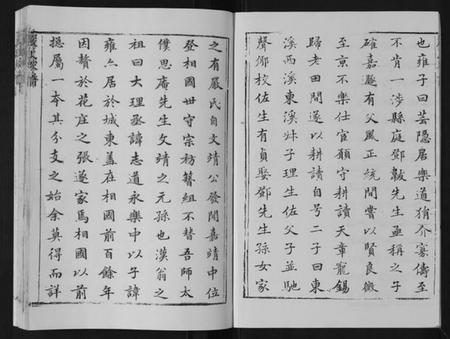 也雍子曰芸隱居樂道狷介寡儔至
不肯一涉縣庭鄧敫先生亟稱之子
確嘉颺有父風正統間嘗以賢良徵
至京不樂仕宦願守耕讀天章寵錫
歸老田間遂以耕讀自号二子曰東
溪西溪東溪妹子理生佐父子並馳
聲鄉校佐生有貞娶鄧先生孫女家
之有嚴氏自文靖公發聞嘉靖中位
登相國世守宗祊簪組不替吾師太
僕思庵先生文靖之元孫也漢翁之
祖曰大理丞諱志道永樂中以子諱
雍亼居於城東蓋在相國前百餘年
因贅於花庄之張遂家馬相國以前
摠屬一本其分支之始余莫得而詳